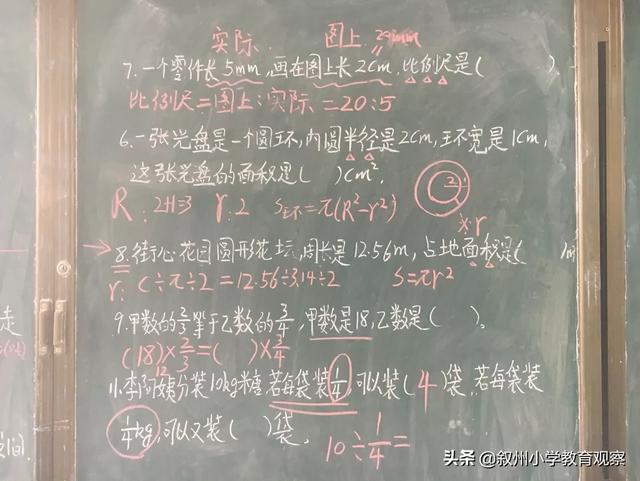 实际 图上 20mm
7.一个零件长5mm,画在图上长2cm,比例尺是( ).
比例尺=图上:实际=20:5
6.一张光盘是一个圆环,内圆半径是2cm,环宽是1cm,
这张光盘的面积是( )cm².
R:2+1=3 r:2 S环=π(R²-r²)
2
r
→8.街心花园圆形花坛,周长是12.56m,占地面积是( )m
r:C÷π÷2=12.56÷3.14÷2 S=πr²
9.甲数的2/3等于乙数的3/4,甲数是18,乙数是( )。
(18)×2/3=( )×3/4
12
11.李阿姨分装10kg糖,若每袋装1/4,可以装(4)袋,若每袋装
1/4kg,可以又装( )袋.
10÷1/4=
走
间.
头条 @叙州小学教育观察